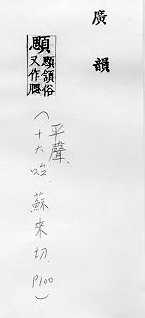 廣韻
顋 顋頷俗
又作腮
(平聲、十六咍、蘇來切、P100)